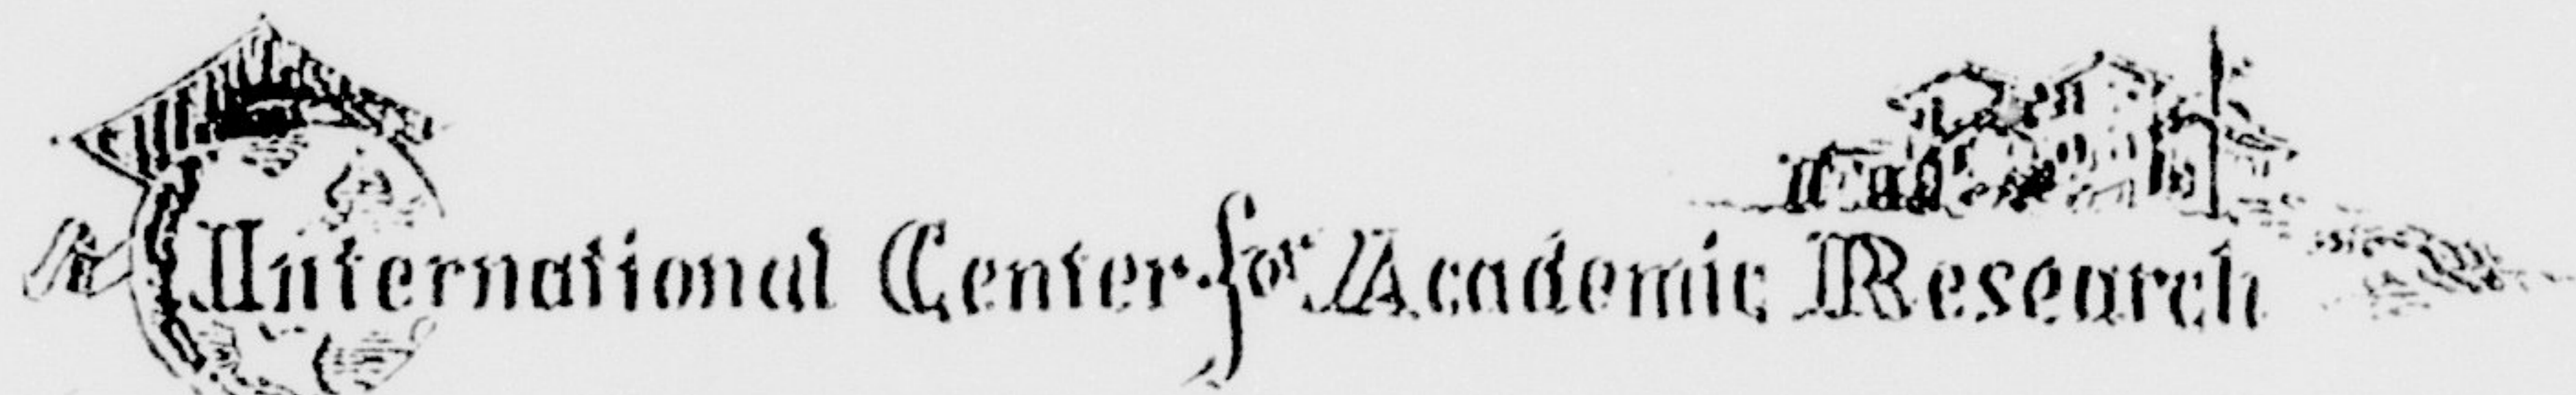 International Center for Academic Research